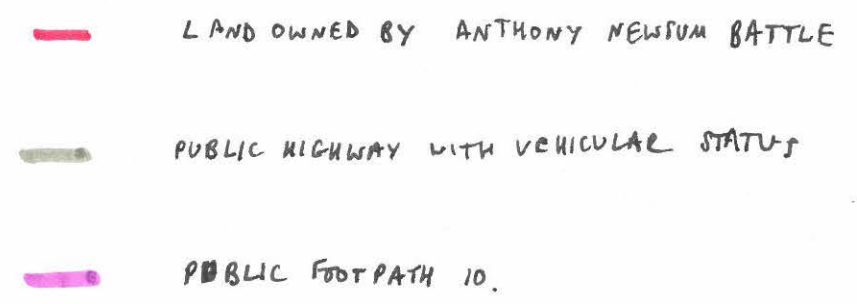 LAND OWNED BY ANTHONY NEWSUM BATTLE
PUBLIC HIGHWAY WITH VEHICULAR STATUS
PUBLIC FOOTPATH 10.